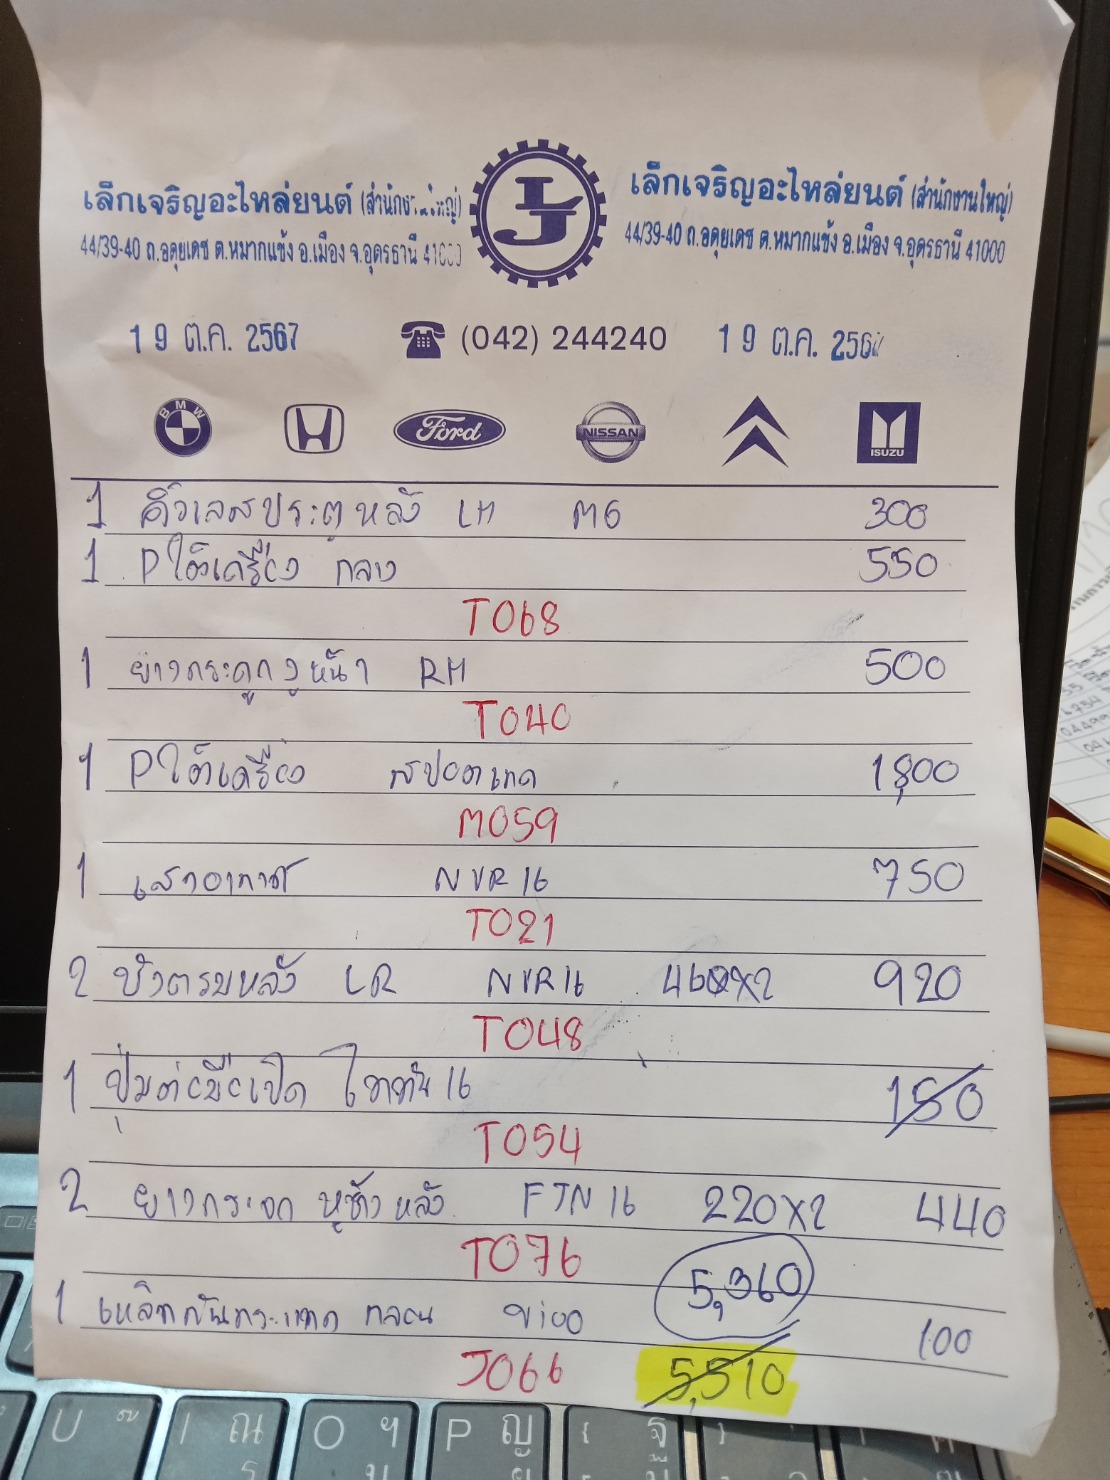 เล็กเจริญอะไหล่ยนต์ (สำนักงานใหญ่)
44/39-40 ถ.อดุยเดช ต.หมากแข้ง อ.เมือง จ.อุดรธานี 41000
LJ
เล็กเจริญอะไหล่ยนต์ (สำนักงานใหญ่)
44/39-40 ถ.อดุยเดช ต.หมากแข้ง อ.เมือง จ.อุดรธานี 41000
19 ต.ค. 2567 (042) 244240 19 ต.ค. 256
BMW Ford NISSAN ISUZU
1 คิ้วเลสประตูหลัง LH M6 300
1 Pใต้เครื่อง กลาง 550
T068
1 ยางกระดูกงูหน้า RH 500
T040
1 Pใต้เครื่อง สปอตเทค 1,800
M059
1 เสาอากาศ NVR16 750
T021
2 บังตรมหลัง LR NVR16 460x2 920
T048
1 ปุ่มต่อมือเปิด ไททัน16 150
T054
2 ยางกระจก หูช้างหลัง FTN16 220x2 440
T076
5,360
1 เหล็กกันกระแทก vioo 100
J066 5,510